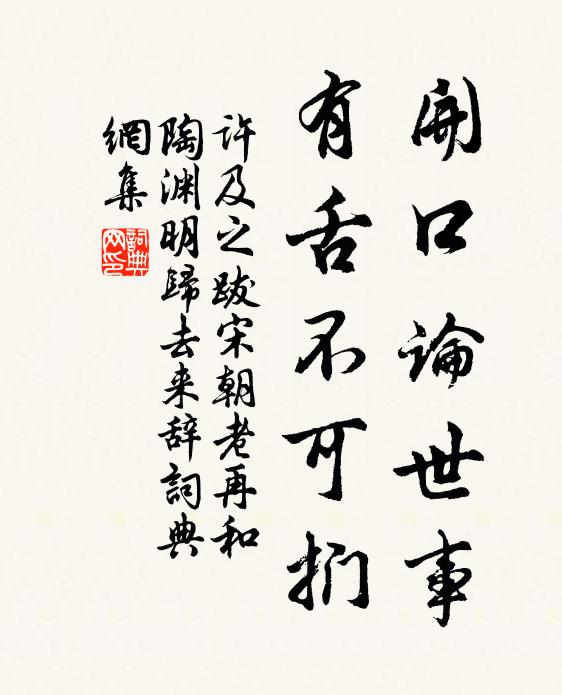 開口論世事
有舌不可捫
許及之跋宋朝老再和
陶渊明歸去来辞詞典
網集
詞典
网印